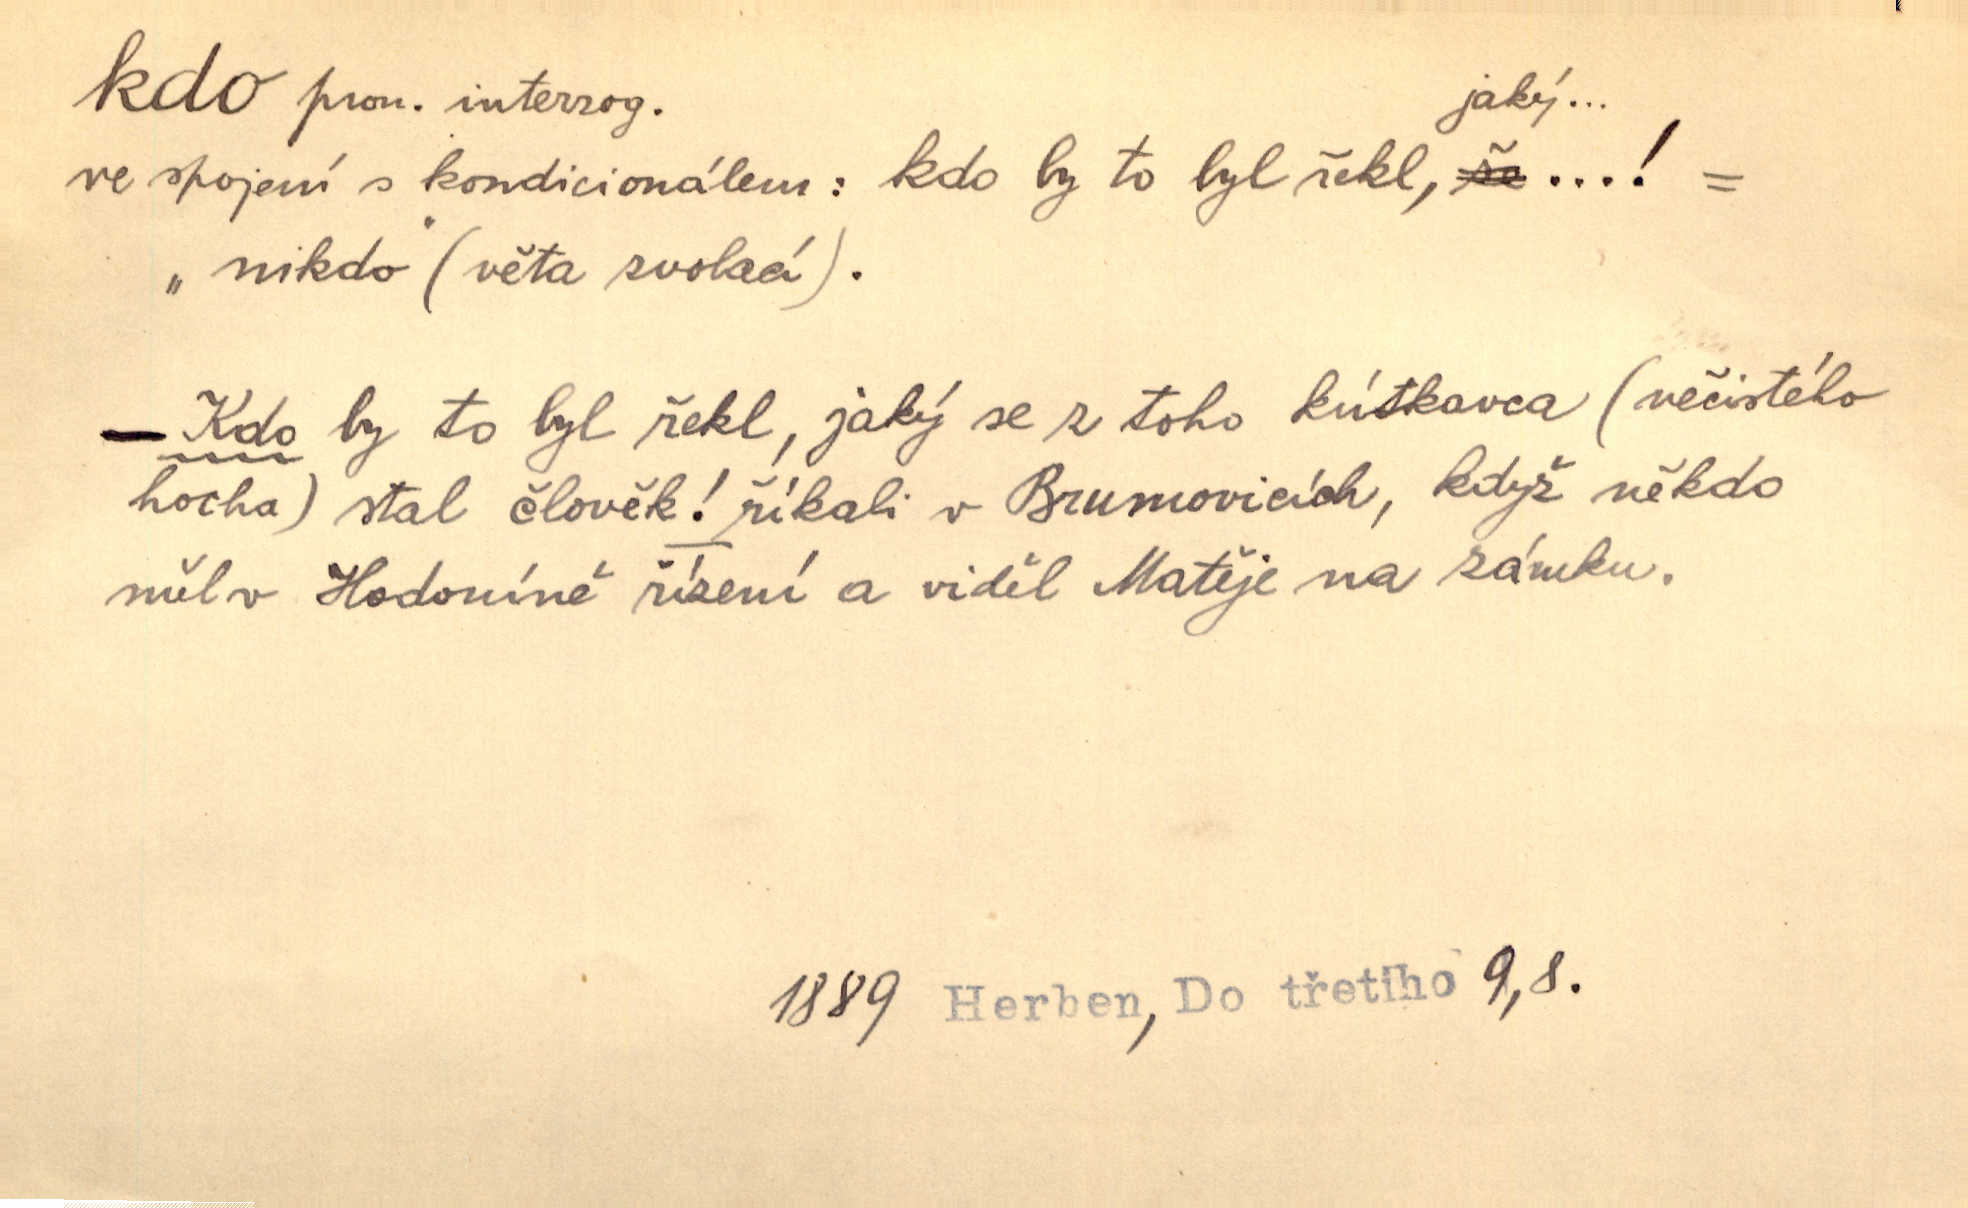 kdo pron. interrog.
jaký...
ve spojení s kondicionálem: kdo by to byl řekl, že ....! =
„nikdo" (věta zvolací).
— Kdo by to byl řekl, jaký se z toho kústkavca (nečistého
hocha) stal člověk! říkali v Brumovicích, když někdo
měl v Hodoníně řízení a viděl Matěje na zámku.
1889 Herben, Do třetího 9,8.